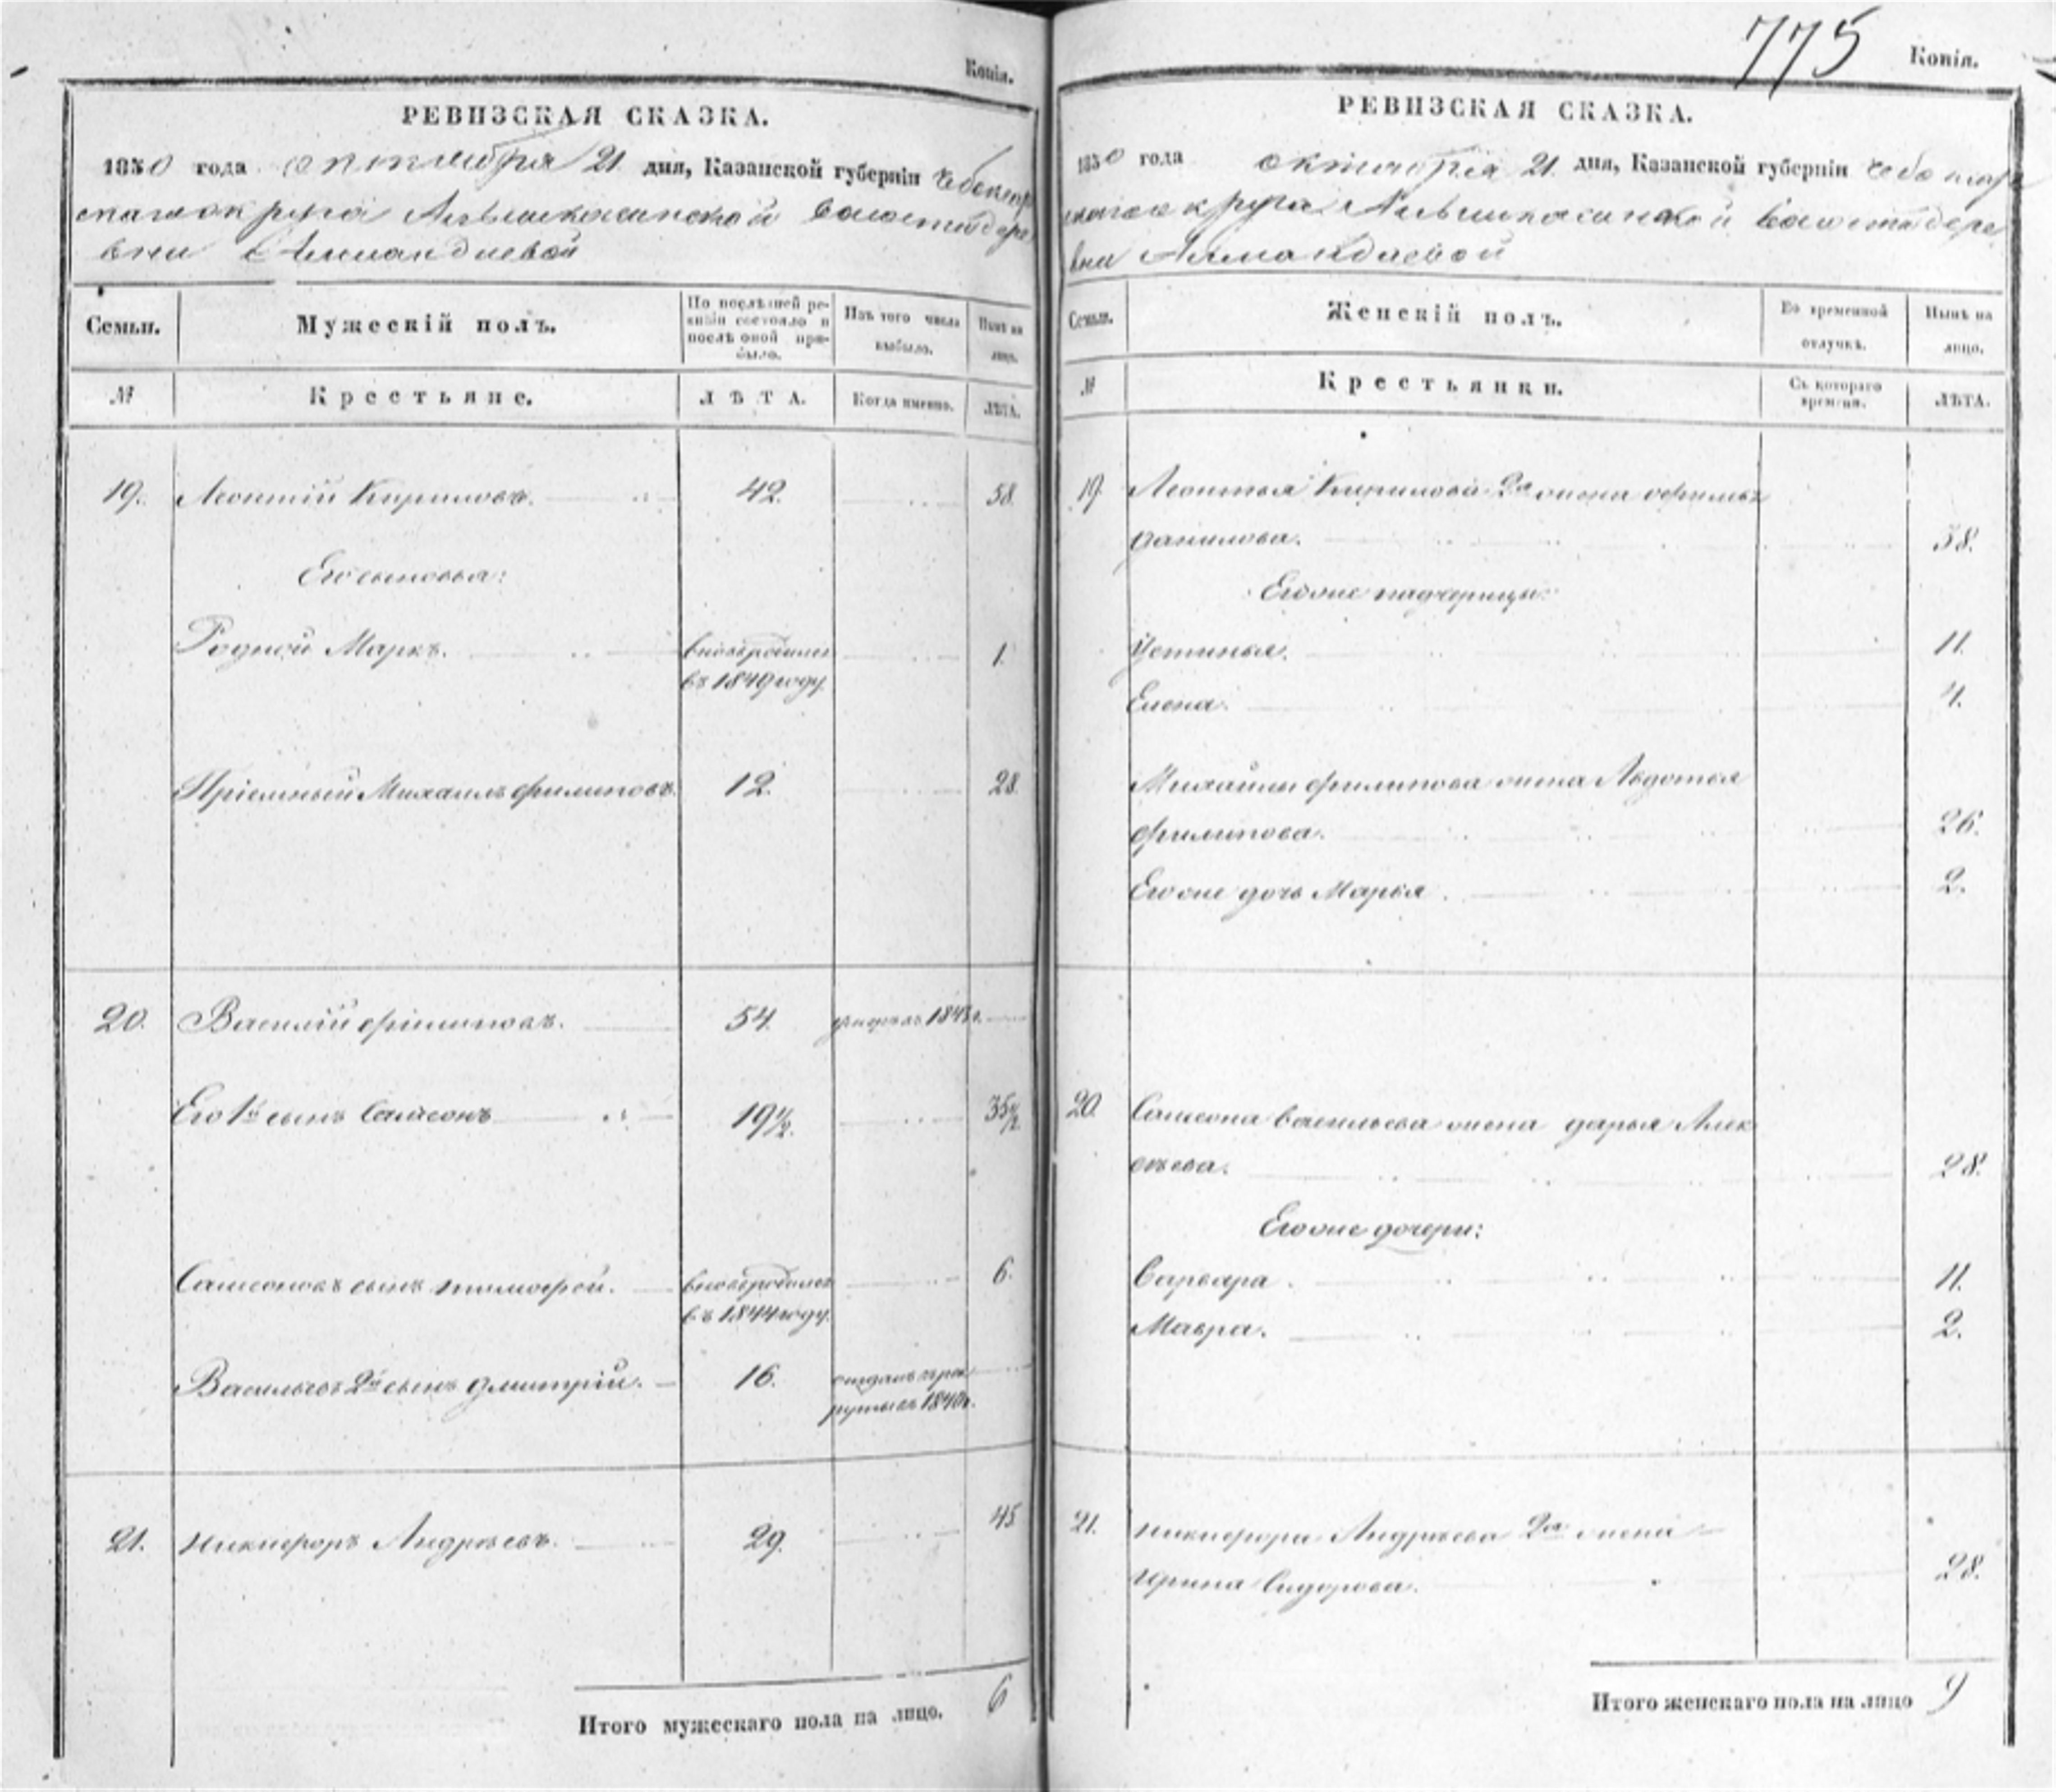 Копія.
РЕВИЗСКАЯ СКАЗКА.
1850 года октября 21 дня, Казанской губерніи Чебоксар
скаго округа Алымкасинской волости дере
вни Алмандаевой
Семьи.
Мужескій полъ.
По послѣдней ре-
визіи состояло и
послѣ оной при-
было.
Изъ того числа
выбыло.
Нынѣ на
лицо.
№
Крестьяне.
ЛѢТА.
Когда именно.
ЛѢТА.
19. Леонтій Кириловъ. 42. 58.
Его сыновья:
Родной Маркъ. вновьродился 1.
въ 1849 году.
Пріемный Михаилъ Филиповъ. 12. 28.
20. Василій Филиповъ. 54. 1843 г.
Его 1й сынъ Самсонъ 19 1/2. 35 1/2
Самсоновъ сынъ тимофей. вновьродился 6.
въ 1844 году.
Васильевъ 2й сынъ дмитрій. 16. отданъ въ рек
руты въ 1840 г.
21. никифоръ Андреевъ. 29. 45
Итого мужескаго пола на лицо. 6
775
Копія.
РЕВИЗСКАЯ СКАЗКА.
1850 года октября 21 дня, Казанской губерніи Чебоксар
скаго округа Алымкасинской волости дере
вни Алмандаевой
Семьи.
Женскій полъ.
Во временной
отлучкѣ.
Нынѣ на
лицо.
№
Крестьянки.
Съ котораго
времени.
ЛѢТА.
19. Леонтья Кирилова 2я жена
данилова. 38.
Егоже падчерицы:
Устинья. 11.
Елена. 4.
Михайлы филипова жена Авдотья
филипова. 26.
Егоже дочь Марья. 2.
20. Самсона васильева жена дарья Алек
сѣева. 28.
Егоже дочери:
Варвара. 11.
Мавра. 2.
21. никифора Андреева 2я жена
ирина Сидорова. 28.
Итого женскаго пола на лицо 9